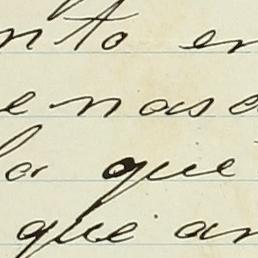 nto en
e nasc
la que
que an